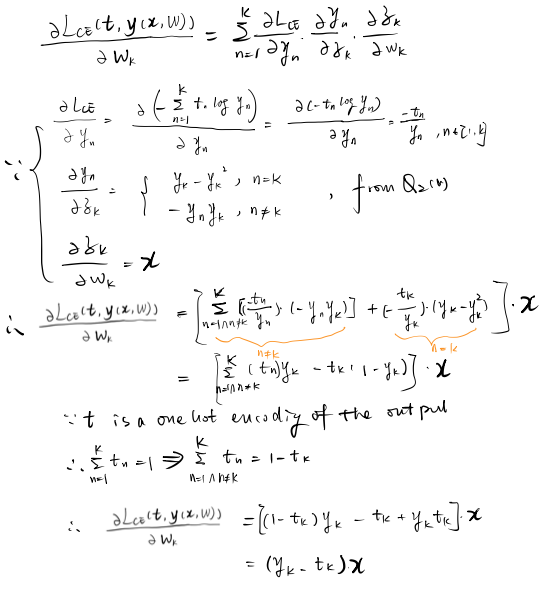 ∂L_CE(t, y(x, W)) / ∂W_k = Σ_{n=1}^{K} ∂L_CE/∂y_n · ∂y_n/∂z_k · ∂z_k/∂w_k
∵ { ∂L_CE/∂y_n = ∂(-Σ_{n=1}^{K} t_n log y_n)/∂y_n = ∂(-t_n log y_n)/∂y_n = -t_n/y_n , n∈[1,K]
∂y_n/∂z_k = { y_k - y_k^2 , n=k
- y_n y_k , n≠k , from Q2(b)
∂z_k/∂w_k = x
∴ ∂L_CE(t, y(x,W))/∂W_k = [Σ_{n=1∧n≠k}^{K} [(-t_n/y_n)·(-y_n y_k)] + (-t_k/y_k)·(y_k-y_k^2)]·x
n≠k n=k
= [Σ_{n=1∧n≠k}^{K} (t_n)y_k - t_k(1-y_k)]·x
∵ t is a one hot encodig of the output
∴ Σ_{n=1}^{K} t_n = 1 ⇒ Σ_{n=1∧n≠k}^{K} t_n = 1-t_k
∴ ∂L_CE(t, y(x,W))/∂W_k = [(1-t_k)y_k - t_k + y_k t_k]·x
= (y_k - t_k)·x